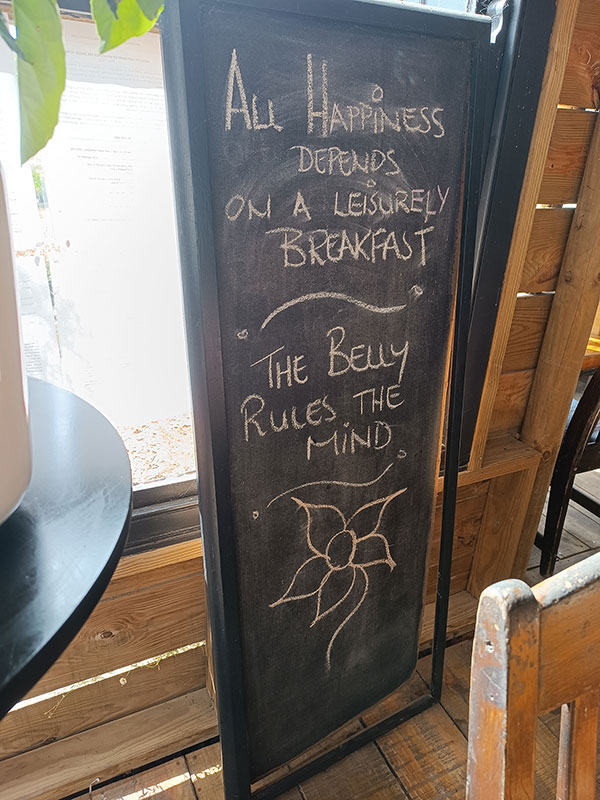 All Happiness
Depends
on a Leisurely
Breakfast
The Belly
Rules the
Mind